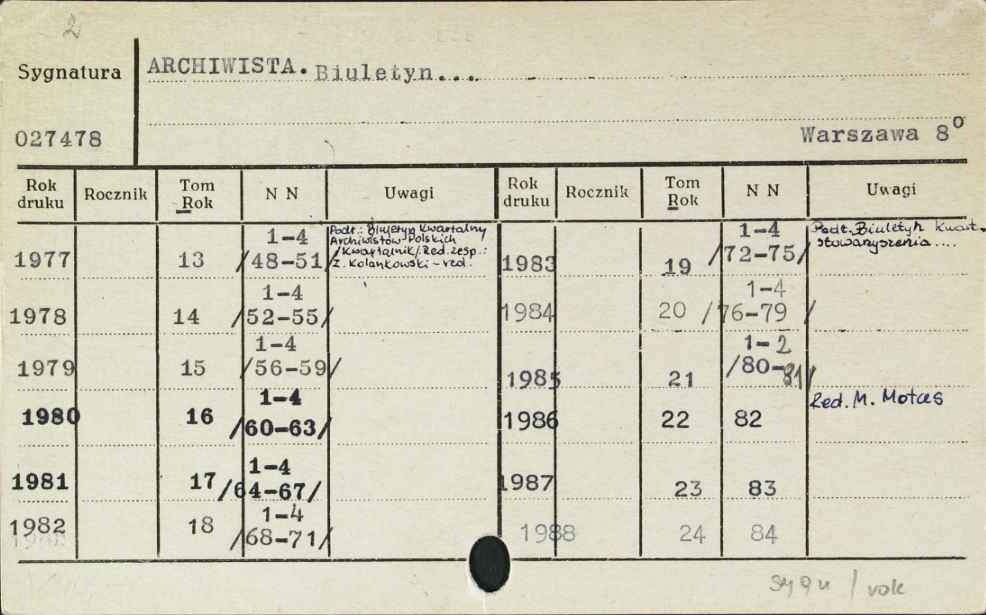 2
Sygnatura ARCHIWISTA. Biuletyn...
027478 Warszawa 8°
Rok druku Rocznik Tom Rok N N Uwagi Rok druku Rocznik Tom Rok N N Uwagi
1977 13 1-4 /48-51/
Podt.: Biuletyn Kwartalny
Archiwistów Polskich
/Kwartalnik/ Red. zesp.:
Z. Kolankowski - red.
1978 14 1-4 /52-55/
1979 15 1-4 /56-59/
1980 16 1-4 /60-63/
1981 17 1-4 /64-67/
1982 18 1-4 /68-71/
1983 19 1-4 /72-75/
Podt. Biuletyn kwart.
stowarzyszenia ....
1984 20 1-4 /76-79 /
1985 21 1-2 /80-81/
1986 22 82 Red. M. Motas
1987 23 83
1988 24 84
sygn / rok